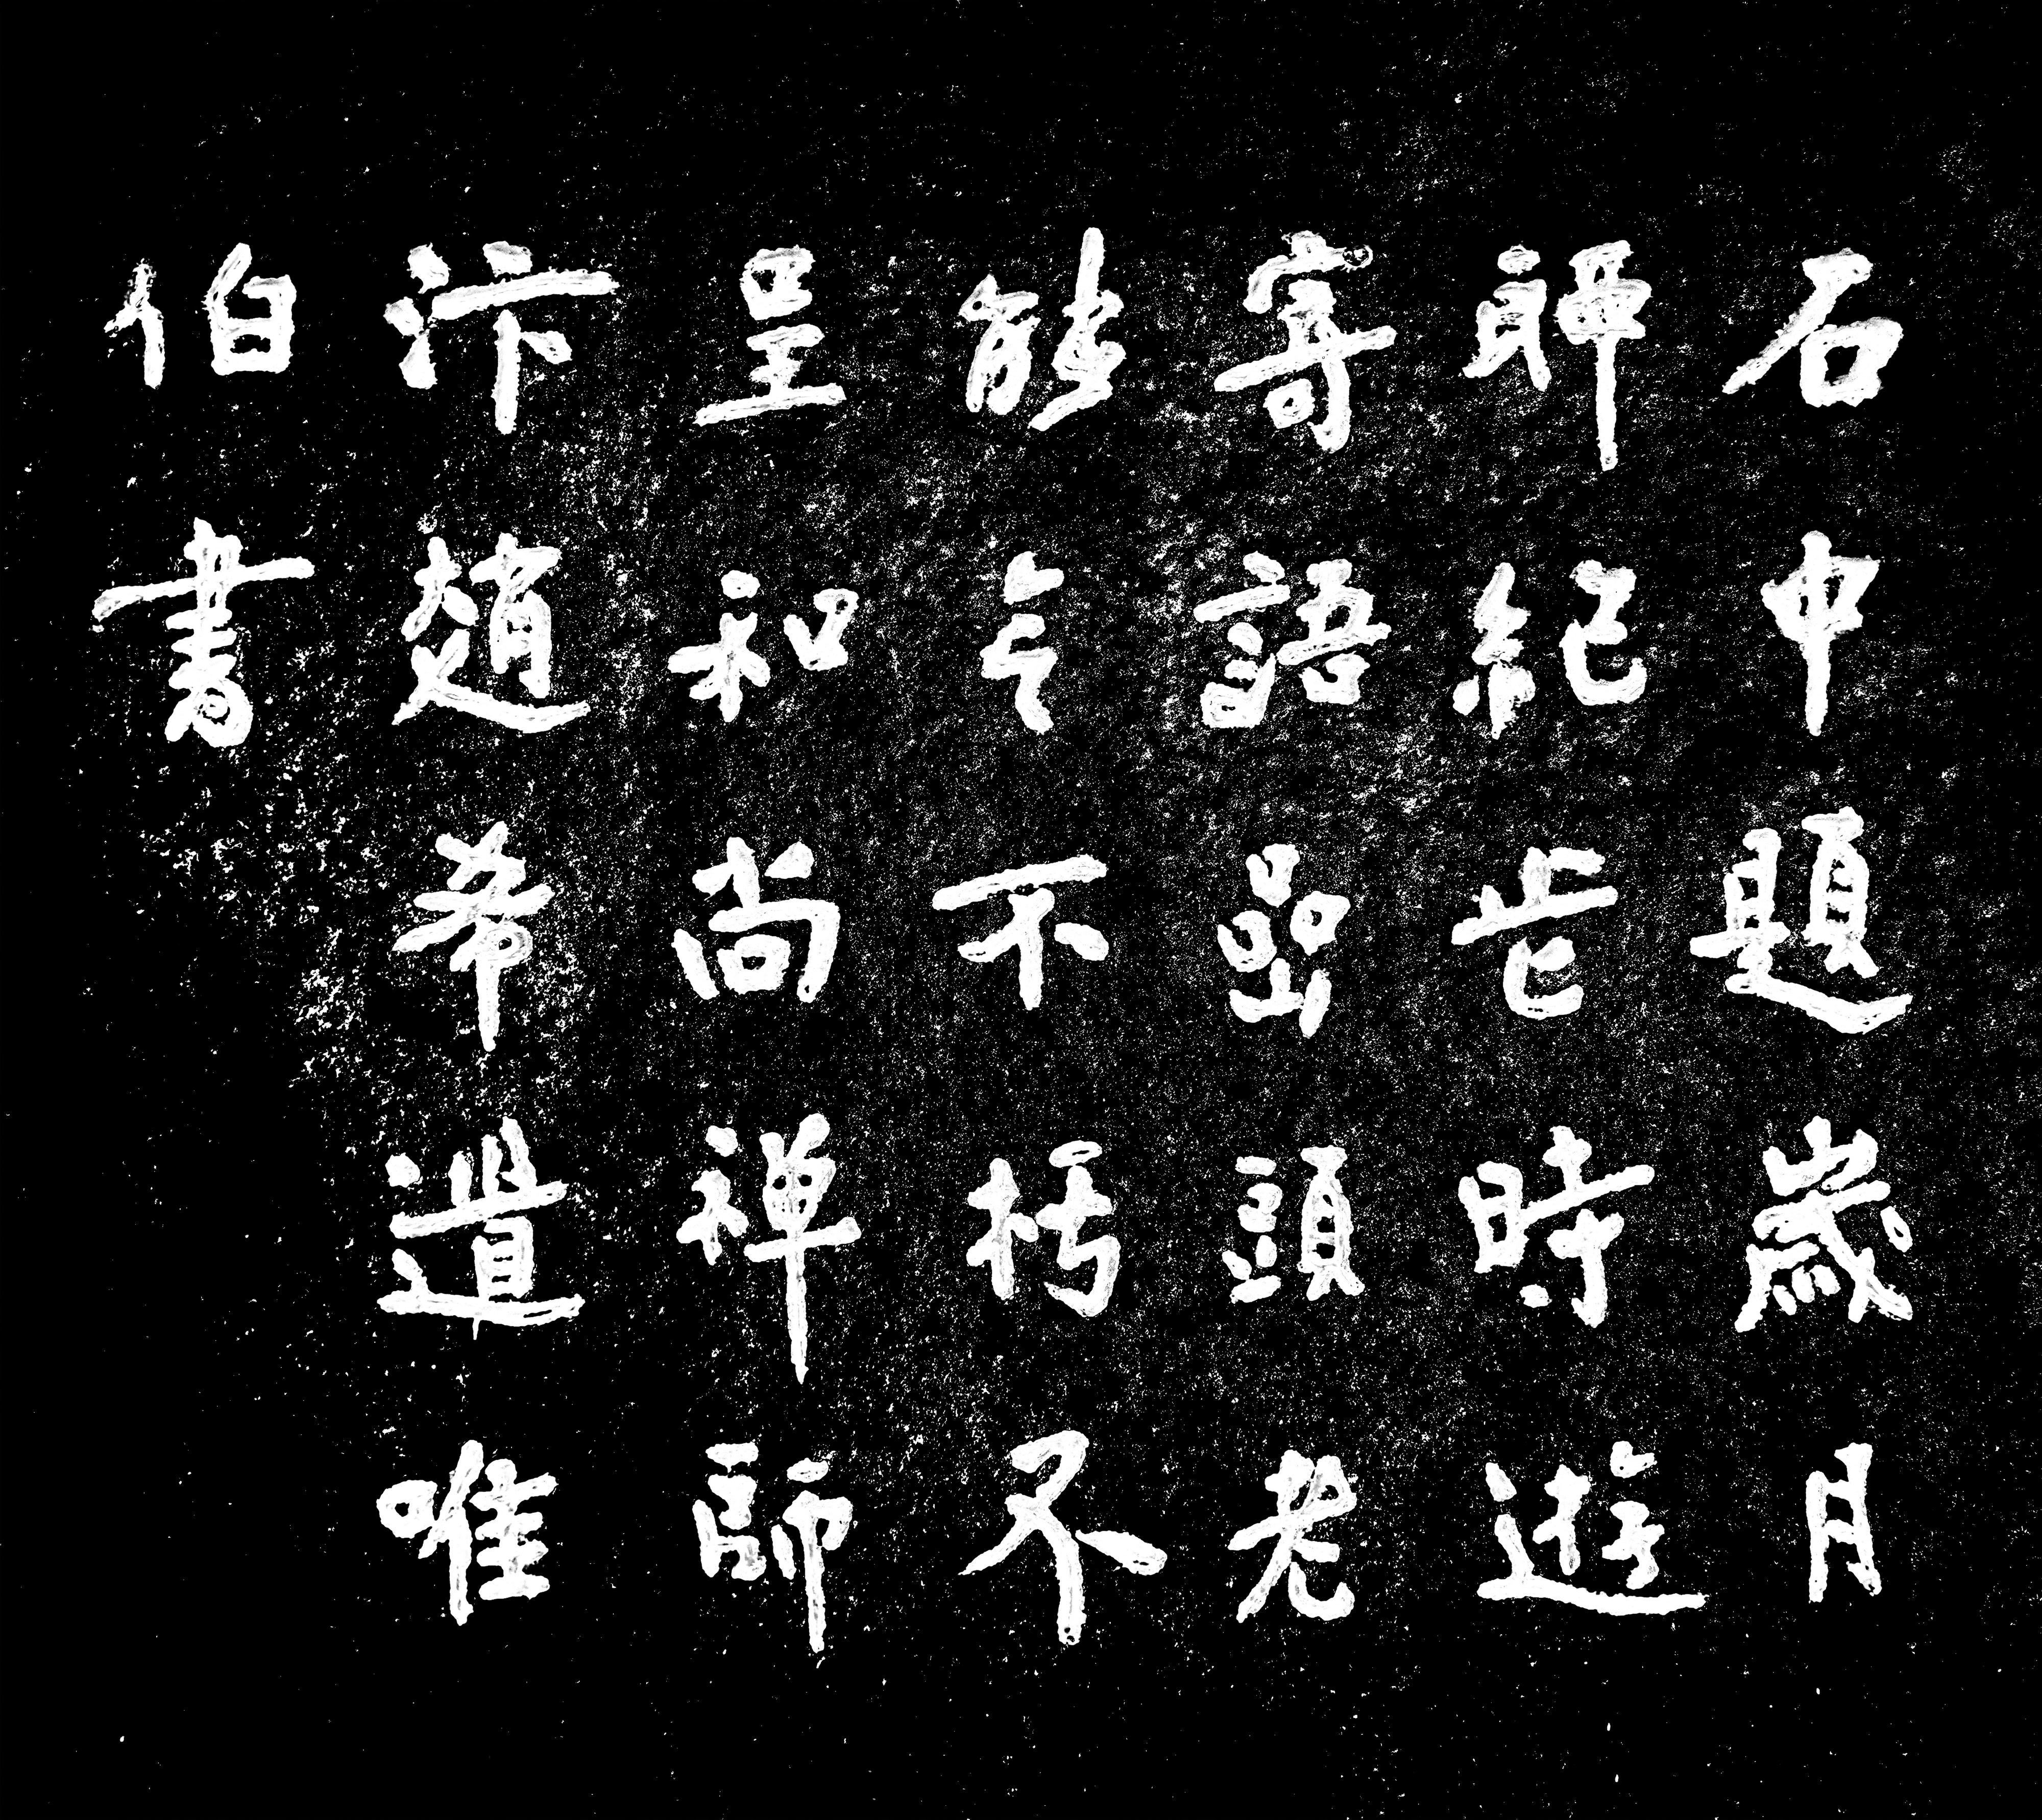 石中題歲月
聊紀此時遊
寄語嵒頭老
能令不朽不
呈和尚禅師
汴趙希道唯
伯書